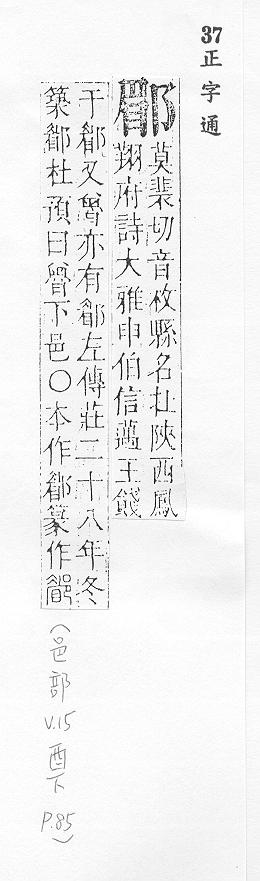 37
正字通
郿
莫裴切音枚縣名在陝西鳳
翔府詩大雅申伯信邁王餞
于郿又魯亦有郿左傳莊二十八年冬
築郿杜預曰魯下邑○本作郿篆作
(邑部 V.15 酉下 P.85)